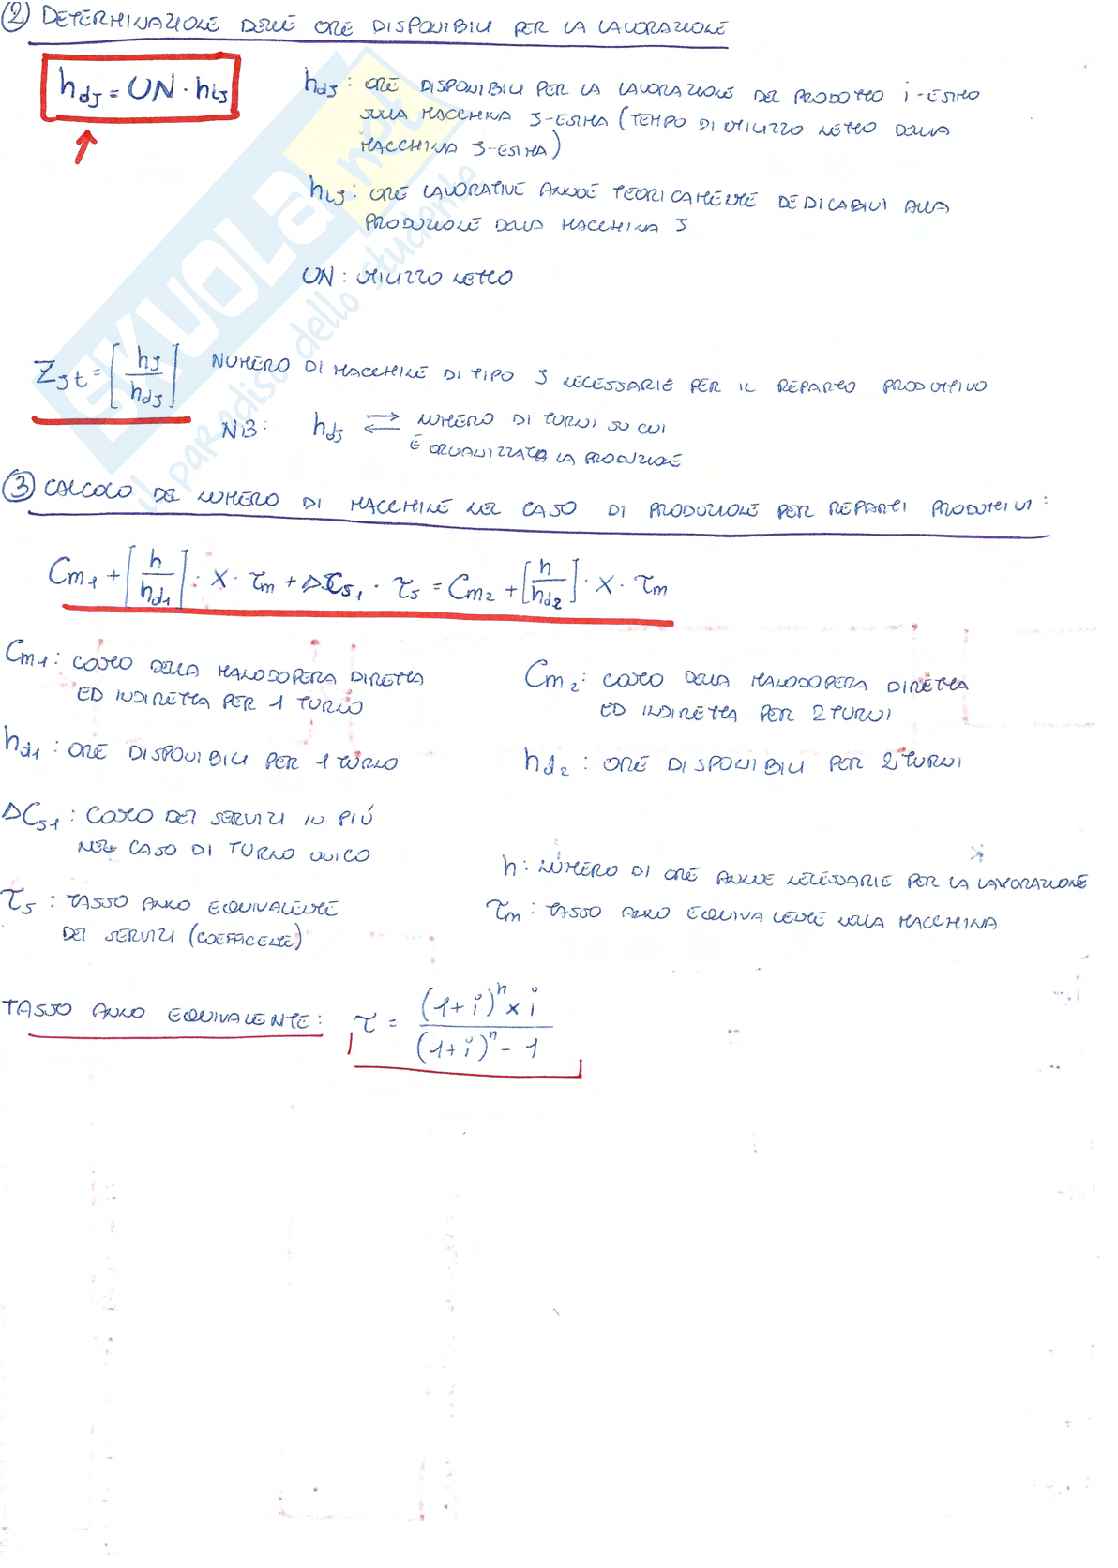 ② DETERMINAZIONE DELLE ORE DISPONIBILI PER LA LAVORAZIONE
hdJ = UN · hLJ
hdJ : ORE DISPONIBILI PER LA LAVORAZIONE DEL PRODOTTO i-ESIMO
SULLA MACCHINA J-ESIMA (TEMPO DI UTILIZZO NETTO DELLA
MACCHINA J-ESIMA)
hLJ : ORE LAVORATIVE ANNUE TEORICAMENTE DEDICABILI ALLA
PRODUZIONE DELLA MACCHINA J
UN : UTILIZZO NETTO
ZJt = ⌈hJ / hdJ⌉ NUMERO DI MACCHINE DI TIPO J NECESSARIE PER IL REPARTO PRODUTTIVO
NB: hdJ ⇄ NUMERO DI TURNI SU CUI
È ORGANIZZATA LA PRODUZIONE
③ CALCOLO DEL NUMERO DI MACCHINE NEL CASO DI PRODUZIONE PER REPARTI PRODUTTIVI:
Cm1 + [h / hd1] · X · τm + ΔCS1 · τS = Cm2 + [h / hd2] · X · τm
Cm1 : COSTO DELLA MANODOPERA DIRETTA
ED INDIRETTA PER 1 TURNO
Cm2 : COSTO DELLA MANODOPERA DIRETTA
ED INDIRETTA PER 2 TURNI
hd1 : ORE DISPONIBILI PER 1 TURNO
hd2 : ORE DISPONIBILI PER 2 TURNI
ΔCS1 : COSTO DEI SERVIZI IN PIÚ
NEL CASO DI TURNO UNICO
h : NUMERO DI ORE ANNUE NECESSARIE PER LA LAVORAZIONE
τS : TASSO ANNO EQUIVALENTE
DEI SERVIZI (COEFFICENTE)
τm : TASSO ANNO EQUIVALENTE NELLA MACCHINA
TASSO ANNO EQUIVALENTE: τ = (1+i)^n × i / (1+i)^n - 1
SKUOLA.net
il paradiso dello studente